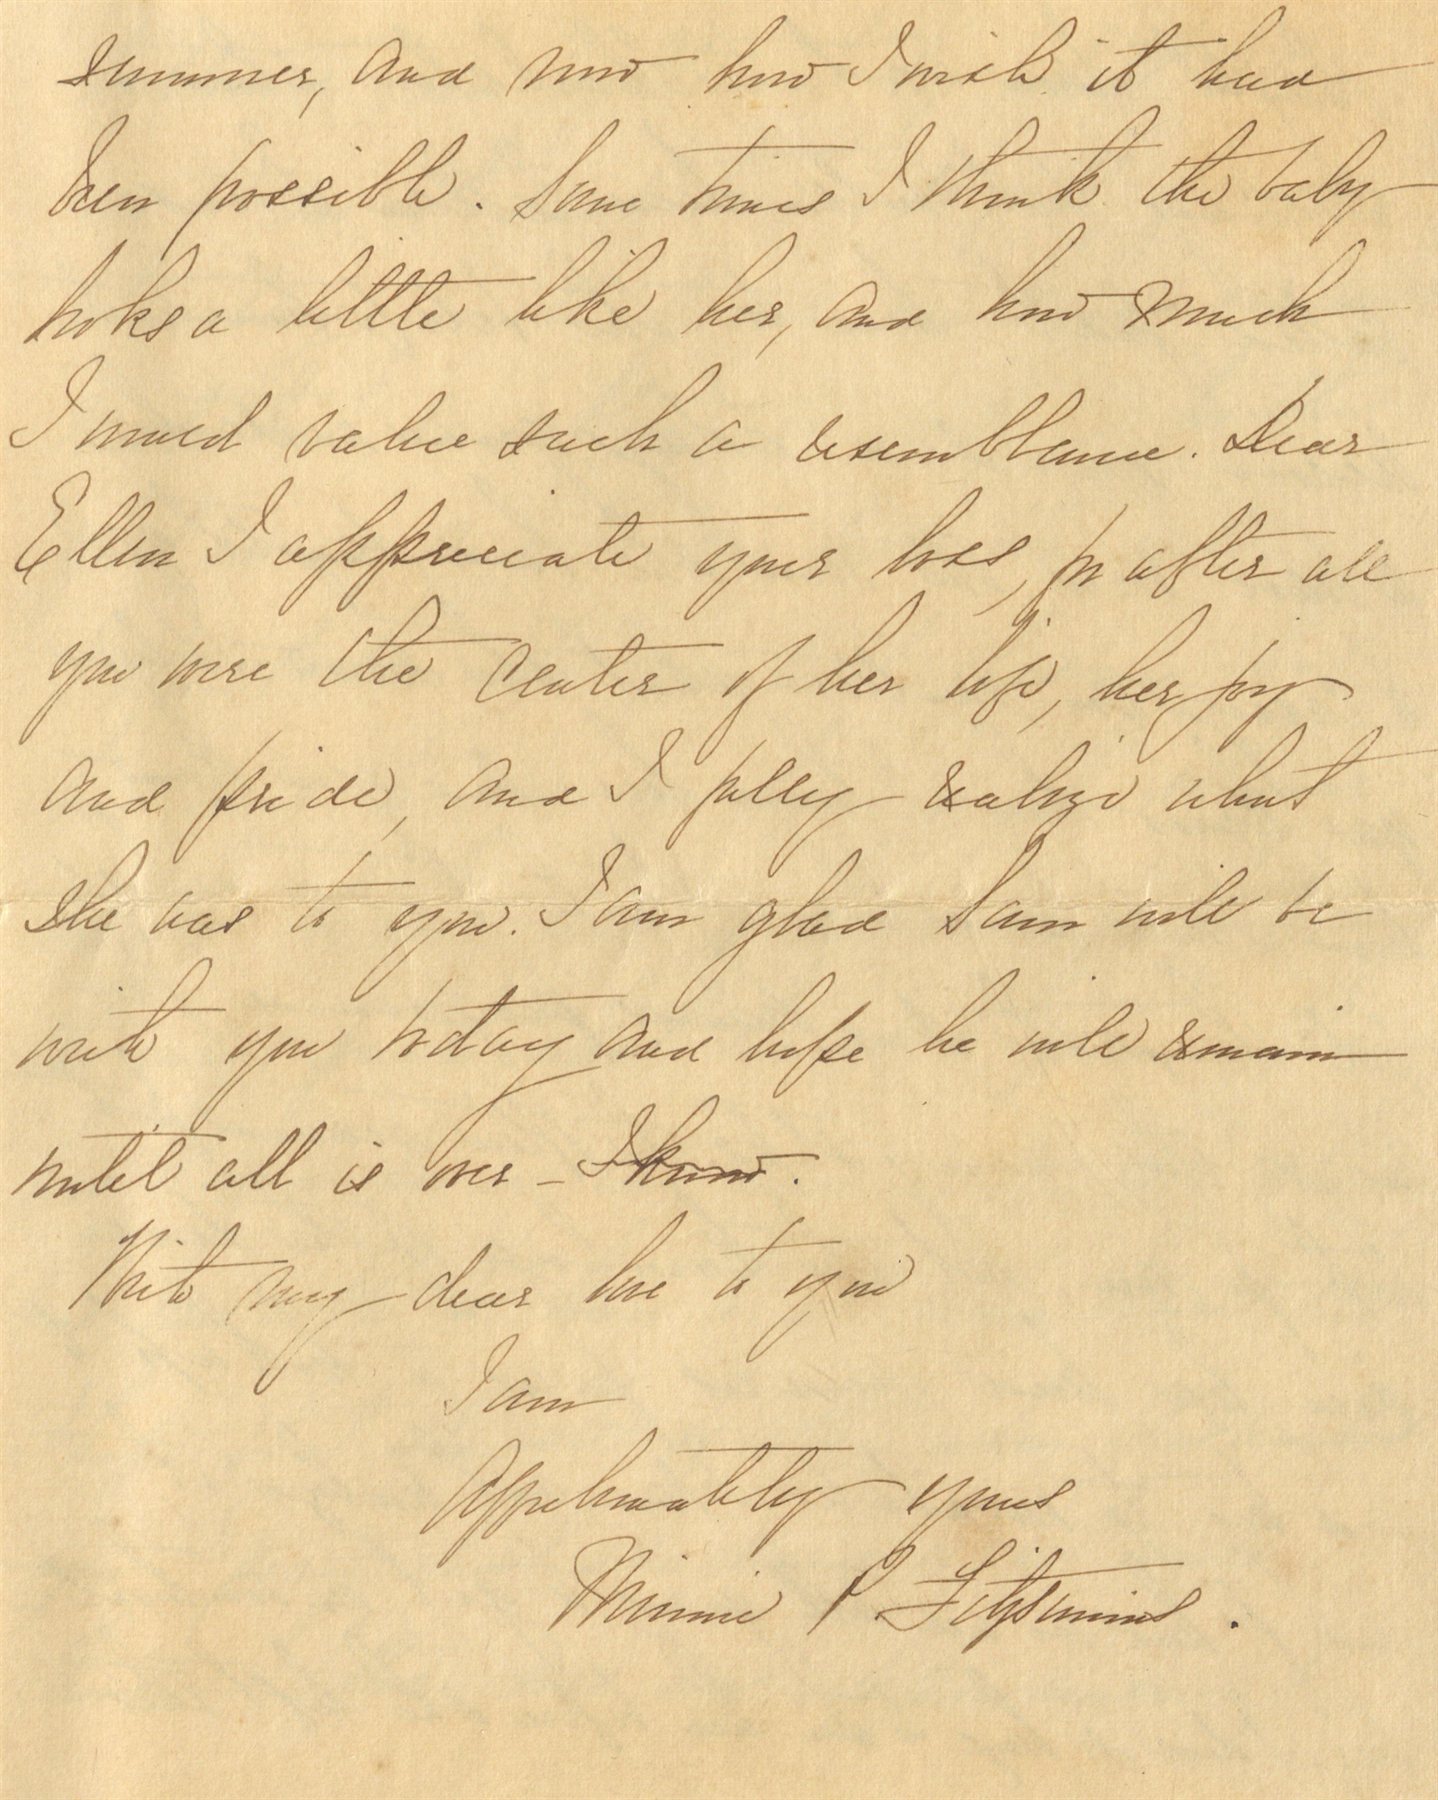 summer, and now how I wish it had
been possible. Some times I think the baby
looks a little like her, and how much
I would value such a resemblance. Dear
Ellen I appreciate your loss, for after all
you were the center of her life, her joy
and pride, and I fully realize what
she was to you. I am glad Sam will be
with you today and hope he will remain
until all is over - I know.
With my dear love to you
I am
Affectionately yours
Minnie P Fitzsimins.